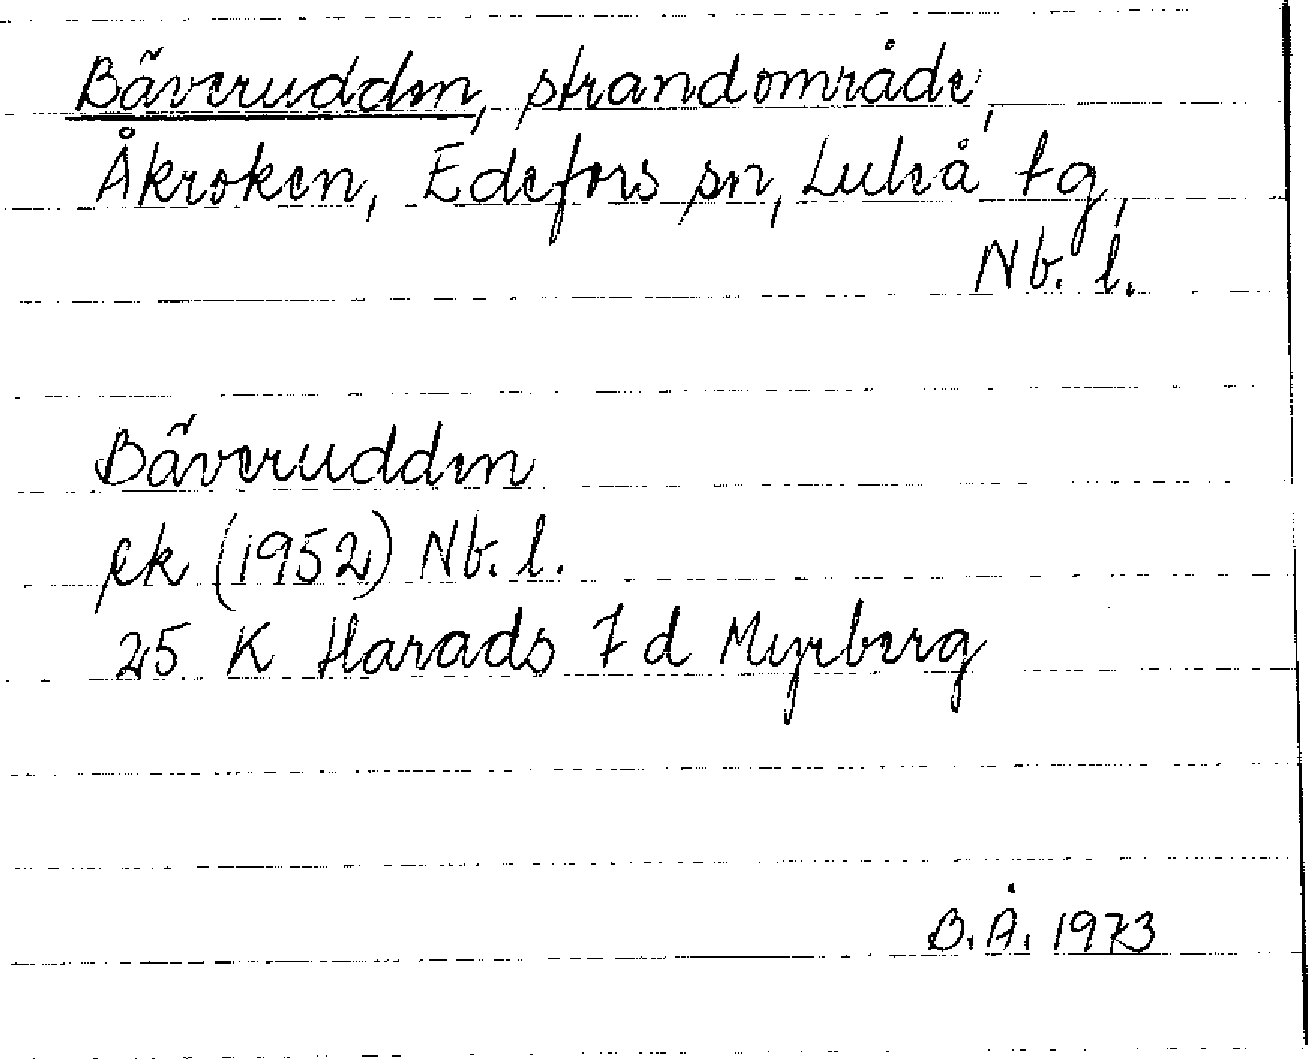 Bäverudden, strandområde,
Åkroken, Edefors sn, Luleå tg,
Nb. l.
Bäverudden
ek (1952) Nb. l.
25 K Harads 7 d Myrberg
B.Å. 1973